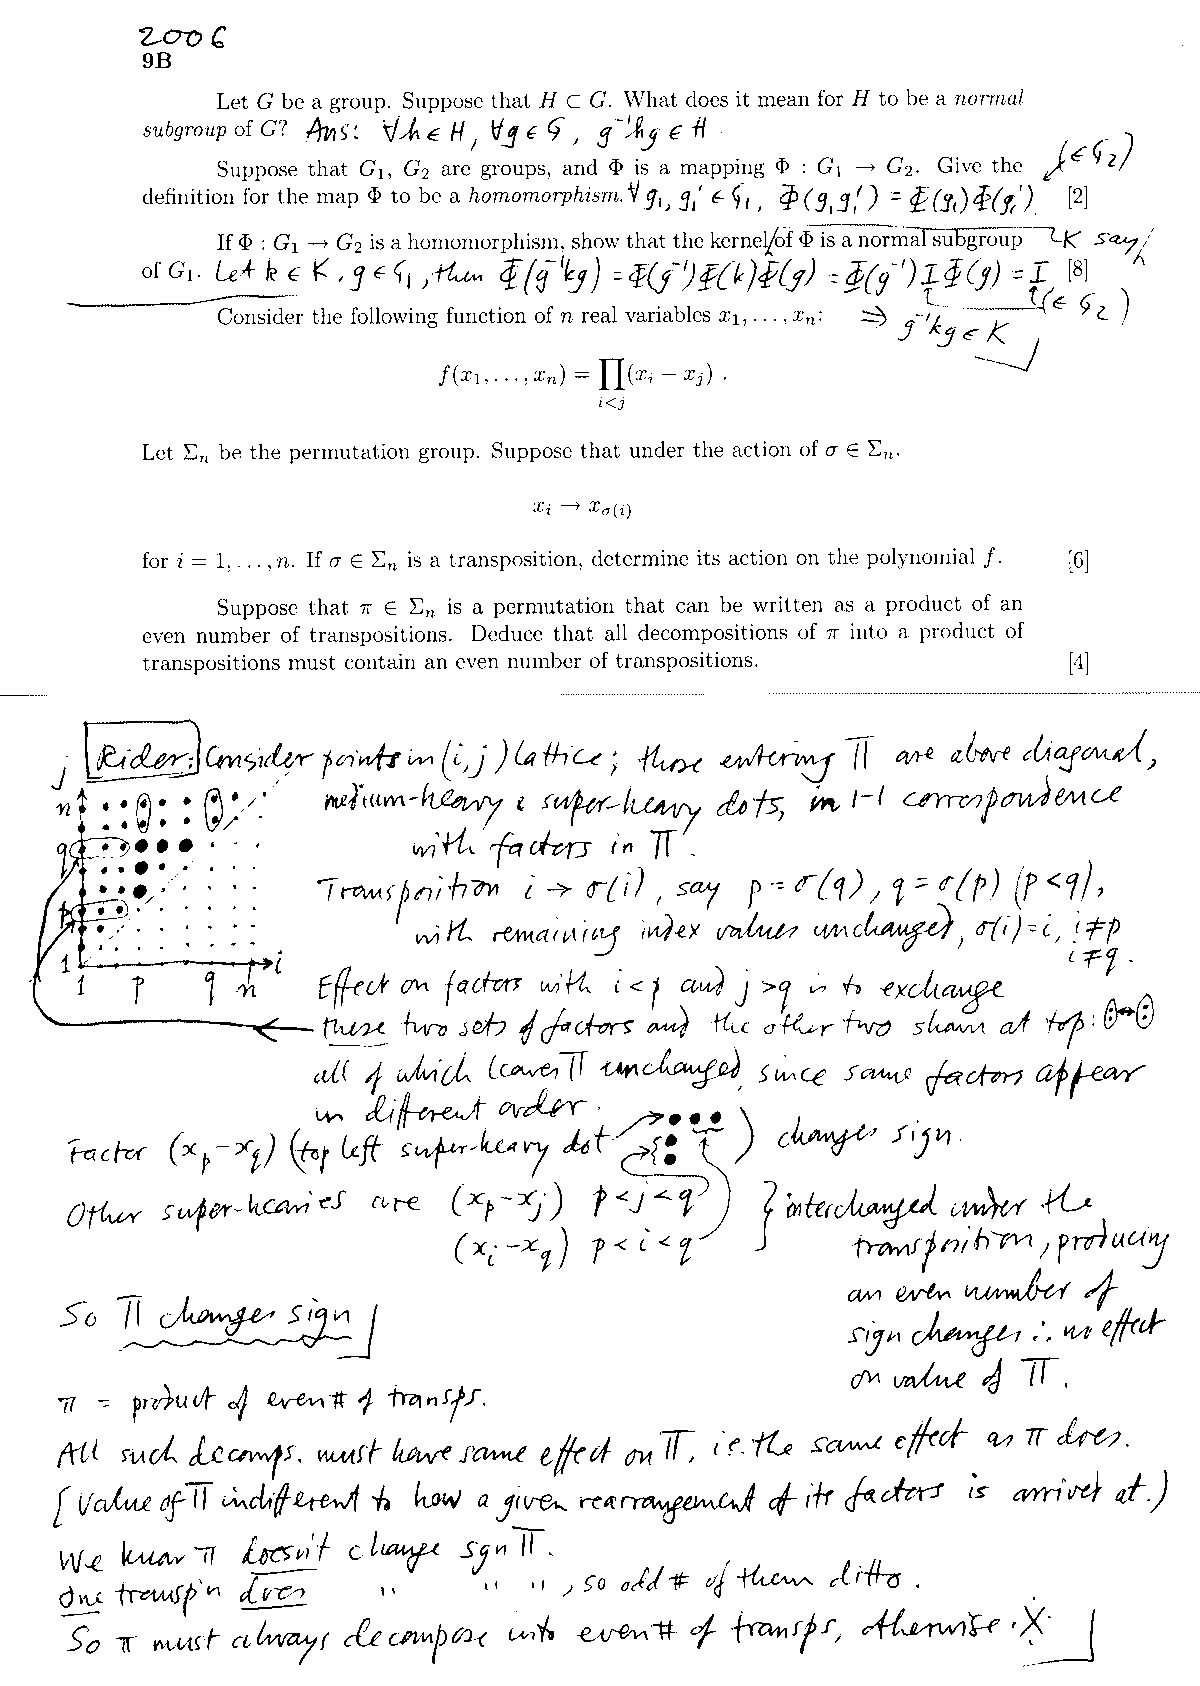 2006
9B
Let G be a group. Suppose that H ⊂ G. What does it mean for H to be a normal
subgroup of G? Ans: ∀h ∈ H, ∀g ∈ G, g⁻¹hg ∈ H.
Suppose that G₁, G₂ are groups, and Φ is a mapping Φ : G₁ → G₂. Give the
definition for the map Φ to be a homomorphism. ∀ g₁, g₁' ∈ G₁, Φ(g₁g₁') = Φ(g₁)Φ(g₁') (∈ G₂) [2]
If Φ : G₁ → G₂ is a homomorphism, show that the kernel of Φ is a normal subgroup K say,
of G₁. Let k ∈ K, g ∈ G₁, then Φ(g⁻¹kg) = Φ(g⁻¹)Φ(k)Φ(g) = Φ(g⁻¹)IΦ(g) = I [8]
(∈ G₂)
Consider the following function of n real variables x₁, . . . , xₙ: ⇒ g⁻¹kg ∈ K
f(x₁, . . . , xₙ) = ∏(xᵢ − xⱼ) .
i<j
Let Σₙ be the permutation group. Suppose that under the action of σ ∈ Σₙ,
xᵢ → x_σ(i)
for i = 1, . . . , n. If σ ∈ Σₙ is a transposition, determine its action on the polynomial f. [6]
Suppose that π ∈ Σₙ is a permutation that can be written as a product of an
even number of transpositions. Deduce that all decompositions of π into a product of
transpositions must contain an even number of transpositions. [4]
Rider: Consider points in (i, j) lattice; those entering ∏ are above diagonal,
medium-heavy & super-heavy dots, in 1-1 correspondence
with factors in ∏.
Transposition i → σ(i), say p = σ(q), q = σ(p) (p<q),
with remaining index values unchanged, σ(i) = i, i ≠ p
i ≠ q.
j
n
q
p
1
1 p q n i
Effect on factors with i < p and j > q is to exchange
these two sets of factors and the other two shown at top:
all of which leaves ∏ unchanged, since same factors appear
in different order.
Factor (xₚ − x_q) (top left super-heavy dot ) changes sign.
Other super-heavies are (xₚ − xⱼ) p < j < q
(xᵢ − x_q) p < i < q
} interchanged under the
transposition, producing
an even number of
sign changes ∴ no effect
on value of ∏.
So ∏ changes sign
π = product of even # of transps.
All such decomps. must have same effect on ∏, i.e. the same effect as π does.
[Value of ∏ indifferent to how a given rearrangement of its factors is arrived at.)
We know π doesn't change sgn ∏.
One transp'n does " " ", so odd # of them ditto.
So π must always decompose into even # of transps, otherwise ·X·